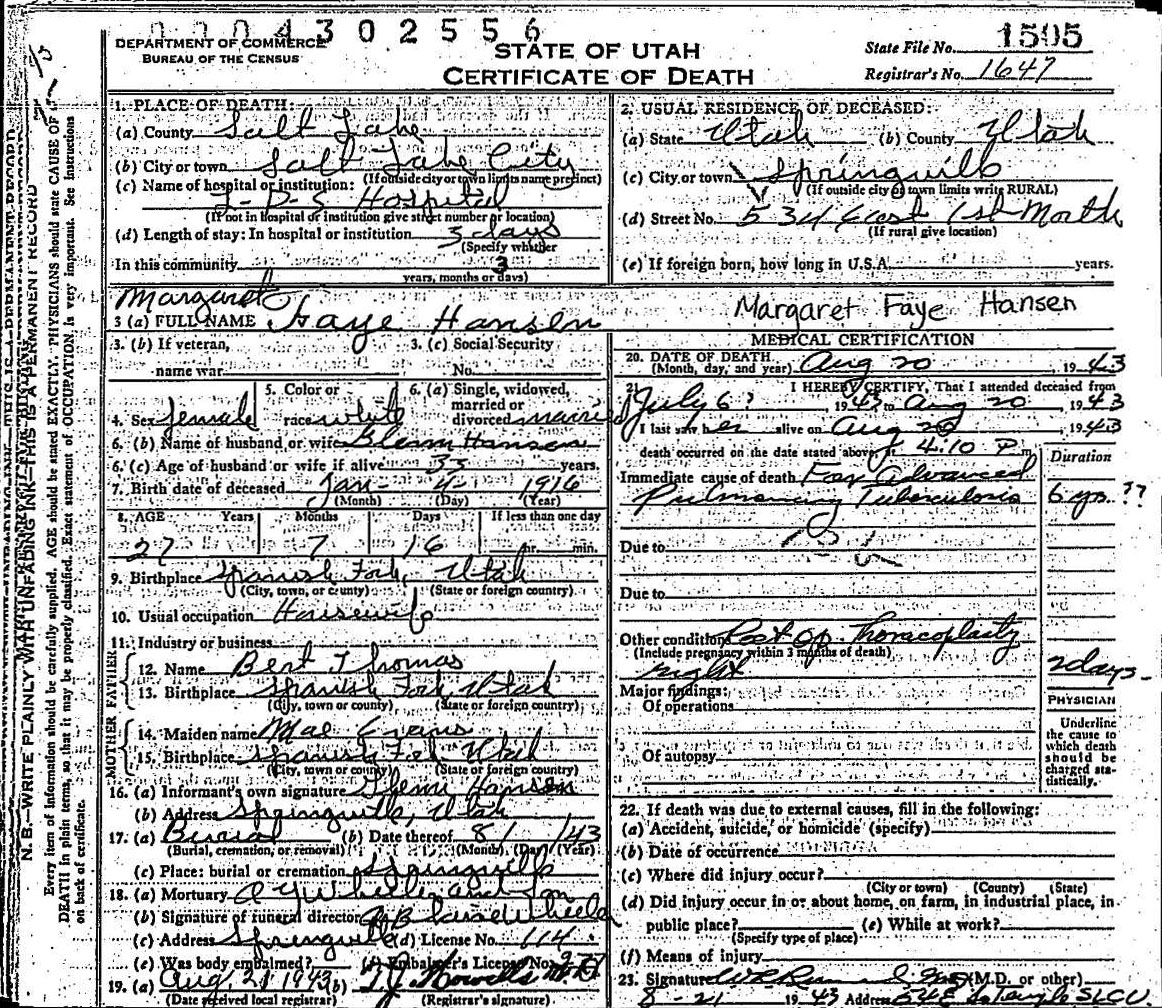 0 0 0 4 3 0 2 5 5 6
DEPARTMENT OF COMMERCE
BUREAU OF THE CENSUS
STATE OF UTAH
CERTIFICATE OF DEATH
State File No. 1505
Registrar's No. 1647
1. PLACE OF DEATH:
(a) County Salt Lake
(b) City or town Salt Lake City
(If outside city or town limits name precinct)
(c) Name of hospital or institution:
L-D-S Hospital
(If not in hospital or institution give street number or location)
(d) Length of stay: In hospital or institution 3 days
(Specify whether
In this community 3
years, months or days)
2. USUAL RESIDENCE OF DECEASED:
(a) State Utah (b) County Utah
(c) City or town Springville
(If outside city or town limits write RURAL)
(d) Street No. 534 East 1st North
(If rural give location)
(e) If foreign born, how long in U.S.A. years.
Margaret
3 (a) FULL NAME Faye Hansen
Margaret Faye Hansen
3. (b) If veteran,
name war
3. (c) Social Security
No.
4. Sex female
5. Color or
race white
6. (a) Single, widowed,
married or
divorced married
6. (b) Name of husband or wife Glenn Hansen
6. (c) Age of husband or wife if alive 33 years.
7. Birth date of deceased Jan- 4- 1916
(Month) (Day) (Year)
8. AGE Years Months Days If less than one day
27 7 16 hr. min.
9. Birthplace Spanish Fork, Utah
(City, town, or county) (State or foreign country)
10. Usual occupation Housewife
11. Industry or business
FATHER
12. Name Bert Thomas
13. Birthplace Spanish Fork, Utah
(City, town or county) (State or foreign country)
MOTHER
14. Maiden name Mae Evans
15. Birthplace Spanish Fork Utah
(City, town or county) (State or foreign country)
16. (a) Informant's own signature Glenn Hansen
(b) Address Springville, Utah
17. (a) Burial (b) Date thereof 8/ /43
(Burial, cremation, or removal) (Month) (Day) (Year)
(c) Place: burial or cremation Springville
18. (a) Mortuary A Y Wheeler and Son
(b) Signature of funeral director Wheeler
(c) Address Springville (d) License No. 114
(e) Was body embalmed? (f) Embalmer's License No. 277
19. (a) Aug. 21 1943 (b)
(Date received local registrar) (Registrar's signature)
MEDICAL CERTIFICATION
20. DATE OF DEATH Aug 20, 1943
(Month, day, and year)
21. I HEREBY CERTIFY, That I attended deceased from
July 6?, 1943 to Aug 20, 1943
I last saw her alive on Aug 20, 1943
death occurred on the date stated above, at 4:10 P m.
Duration
Immediate cause of death Far Advanced
Pulmonary Tuberculosis 6 yrs. ??
Due to
Due to
Other conditions Post op. Thoracoplasty
(Include pregnancy within 3 months of death)
right 2 days-
Major findings:
Of operations
Of autopsy
PHYSICIAN
Underline
the cause to
which death
should be
charged sta-
tistically.
22. If death was due to external causes, fill in the following:
(a) Accident, suicide, or homicide (specify)
(b) Date of occurrence
(c) Where did injury occur?
(City or town) (County) (State)
(d) Did injury occur in or about home, on farm, in industrial place, in
public place? (e) While at work?
(Specify type of place)
(f) Means of injury
23. Signature (M.D. or other)
8-21 1943 Address
N. B.—WRITE PLAINLY WITH UNFADING INK—THIS IS A PERMANENT RECORD
Every item of information should be carefully supplied. AGE should be stated EXACTLY. PHYSICIANS should state CAUSE OF
DEATH in plain terms, so that it may be properly classified. Exact statement of OCCUPATION is very important. See Instructions
on back of certificate.